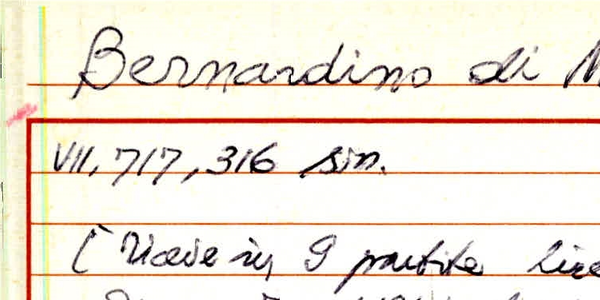 Bernardino di M
VII, 717, 316 sin.
( Riceve in 9 partite lire